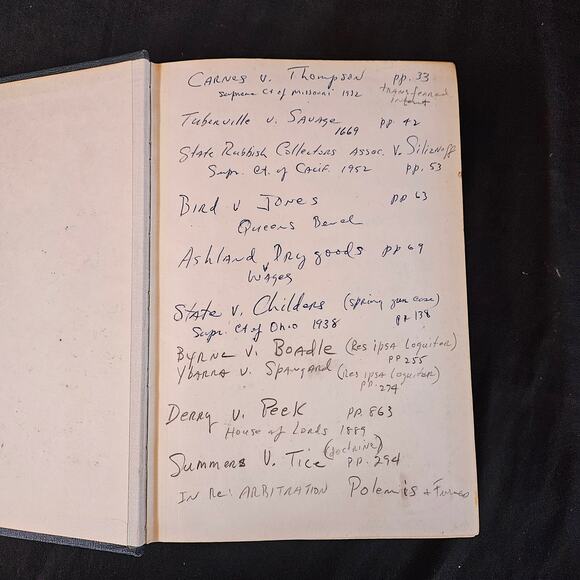 CARNES v. Thompson pp. 33
Supreme Ct of Missouri 1932 transferred
intent
Tuberville v. Savage pp 42
1669
State Rubbish Collectors Assoc. v. Siliznoff
Supr. Ct. of Calif. 1952 pp. 53
Bird v Jones pp 63
Queens Bench
Ashland Dry goods pp 69
v
Wages
State v. Childers (spring gun case)
Supr. Ct of Ohio 1938 pp 138
Byrne v. Boadle (Res ipsa loquitor)
pp 255
Ybarra v. Spangard (Res ipsa loquitor)
pp. 274
Derry v. Peek pp. 863
House of Lords 1889
Summers v. Tice (doctrine) pp. 294
IN Re: ARBITRATION Polemis + Furness